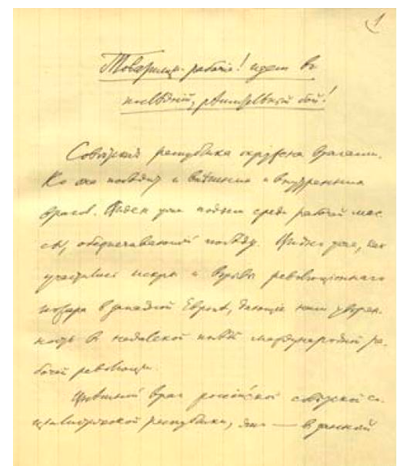 1
Товарищи-рабочіе! Идем в
последній, рѣшительный бой!
Советская республика окружена врагами.
Но она победит и внешних и внутренних
врагов. Виден уже подъем среди рабочей мас-
сы, обеспечивающій победу. Видно уже, как
участились искры и взрывы революціонного
пожара в западной Европе, дающіе нам уверен-
ность в недалекой победе международной ра-
бочей революціи.
Внешний враг российской советской со-
циалистической республики, это —